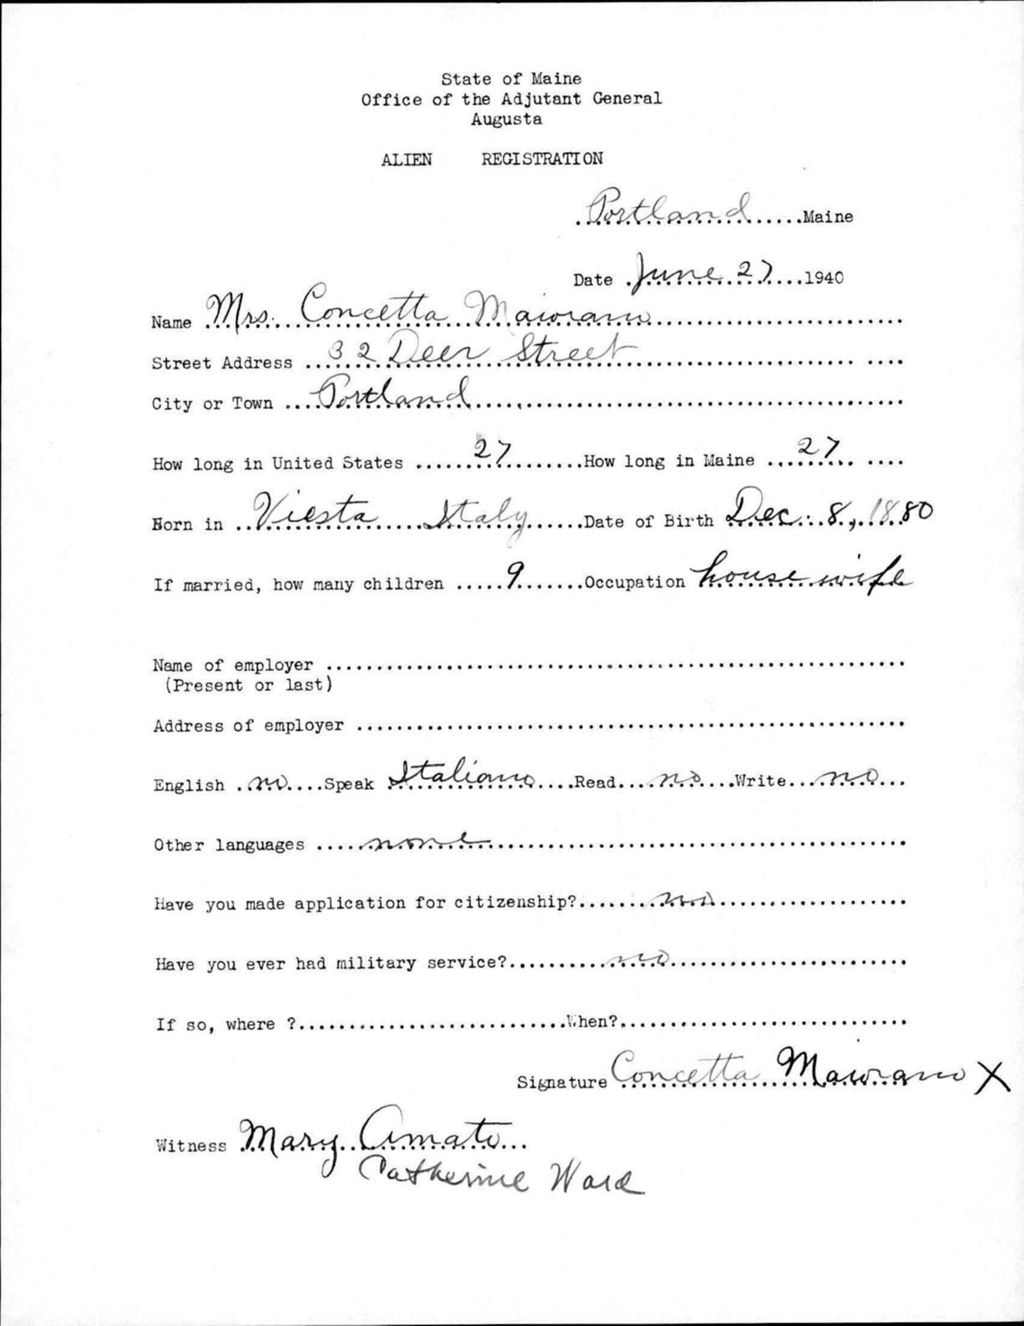 State of Maine
Office of the Adjutant General
Augusta
ALIEN REGISTRATION
Portland Maine
Date June 27 1940
Name Mrs. Concetta Maiorano
Street Address 32 Deer Street
City or Town Portland
How long in United States 27 How long in Maine 27
Born in Viesta Italy Date of Birth Dec. 8, 1880
If married, how many children 9 Occupation housewife
Name of employer
(Present or last)
Address of employer
English no Speak Italiano Read no Write no
Other languages none
Have you made application for citizenship? no
Have you ever had military service? no
If so, where ? When?
Signature Concetta Maiorano X
Witness Mary Amato
Catherine Ward